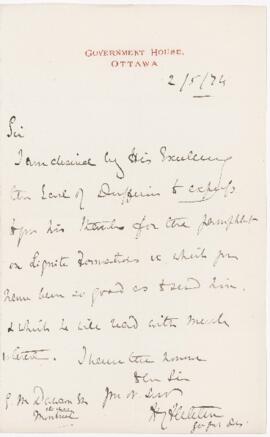 GOVERNMENT HOUSE,
OTTAWA
2/5/74
Sir
I am desired by His Excellency
the Earl of Dufferin to express
to you his thanks for the pamphlet
on Lignite Formations &c which you
have been so good as to send him.
& which he will read with much
interest. I have the honour
to be Sir
G M Dawson Esq
Montreal